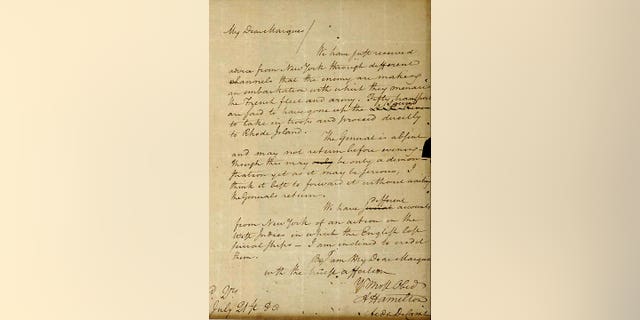 My Dear Marquis/
We have just received
advice from New York through different
channels that the enemy are making
an embarkation with which they menace
the French fleet and army. Fifty transports
are said to have gone up the Sound
to take in troops and proceed directly
to Rhode Island.
The General is absent
and may not return before evening.
Though this may only be only a demon-
stration yet as it may be serious, I
think it best to forward it without waiting
the Generals return.
We have different accounts
from New York of an action in the
West Indies in which the English lost
several ships – I am inclined to credit
them.
I am My Dear Marquis
with the truest affection
Yr Most Obed
A Hamilton
Aide De Camp
Qrs
July 21st 80